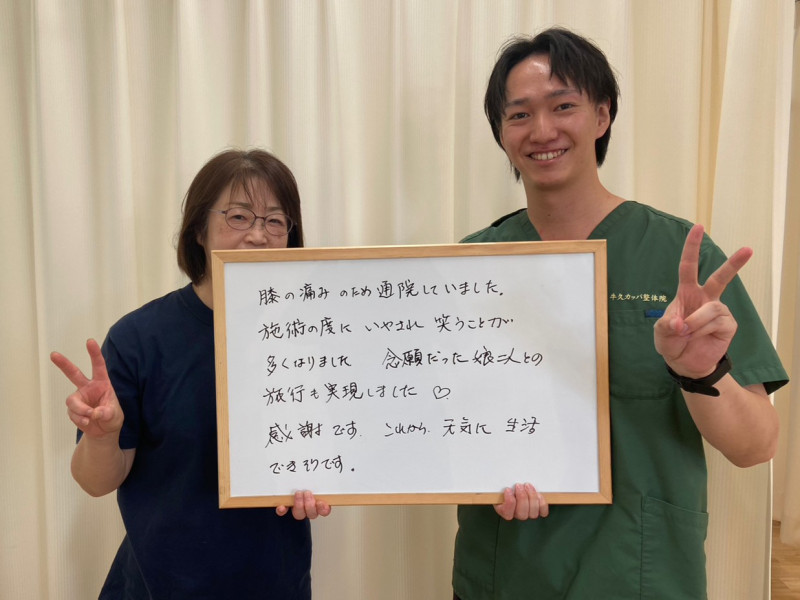 膝の痛みのため通院していました。
施術の度に いやされ 笑うことが
多くなりました 念願だった娘二人との
旅行も実現しました ♡
感謝です。これから 元気に 生活
できそうです。
牛久カッパ整体院